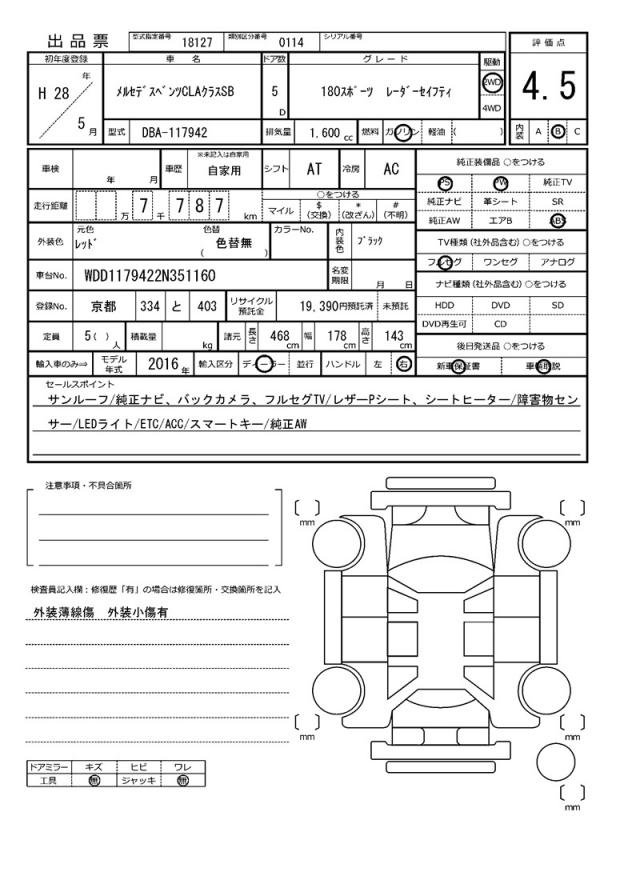 出品票 型式指定番号 18127 類別区分番号 0114 シリアル番号
初年度登録 車名 ドア数 グレード 駆動 評価点
H 28 年 5 月 メルセデスベンツCLAクラスSB 5 D 180スポーツ レーダーセイフティ 2WD 4WD 4.5
型式 DBA-117942 排気量 1.600 cc 燃料 ガソリン 軽油 ( ) 内装 A B C
車検 年 月 車歴 ※未記入は自家用 自家用 シフト AT 冷房 AC 純正装備品 ○をつける
PS PW 純正TV
走行距離 万 7 千 7 8 7 km ○をつける
マイル $(交換) *(改ざん) #(不明)
純正ナビ 革シート SR
純正AW エアB ABS
外装色 元色 レッド 色替 ( 色替無 ) カラーNo. 内装色 ブラック
TV種類 (社外品含む) ○をつける
フルセグ ワンセグ アナログ
車台No. WDD1179422N351160 名変期限 月 日
ナビ種類 (社外品含む) ○をつける
登録No. 京都 334 と 403 リサイクル預託金 19,390円預託済 未預託
HDD DVD SD
DVD再生可 CD
定員 5 ( ) 人 積載量 kg 諸元 長さ 468 cm 幅 178 cm 高さ 143 cm
後日発送品 ○をつける
輸入車のみ⇒ モデル年式 2016 年 輸入区分 ディーラー 並行 ハンドル 左 右
新車保証書 車輌取説
セールスポイント
サンルーフ/純正ナビ、バックカメラ、フルセグTV/レザーPシート、シートヒーター/障害物セン
サー/LEDライト/ETC/ACC/スマートキー/純正AW
注意事項・不具合箇所
mm mm
検査員記入欄：修復歴「有」の場合は修復箇所・交換箇所を記入
外装薄線傷 外装小傷有
mm mm
ドアミラー キズ ヒビ ワレ
工具 無 ジャッキ 無
mm